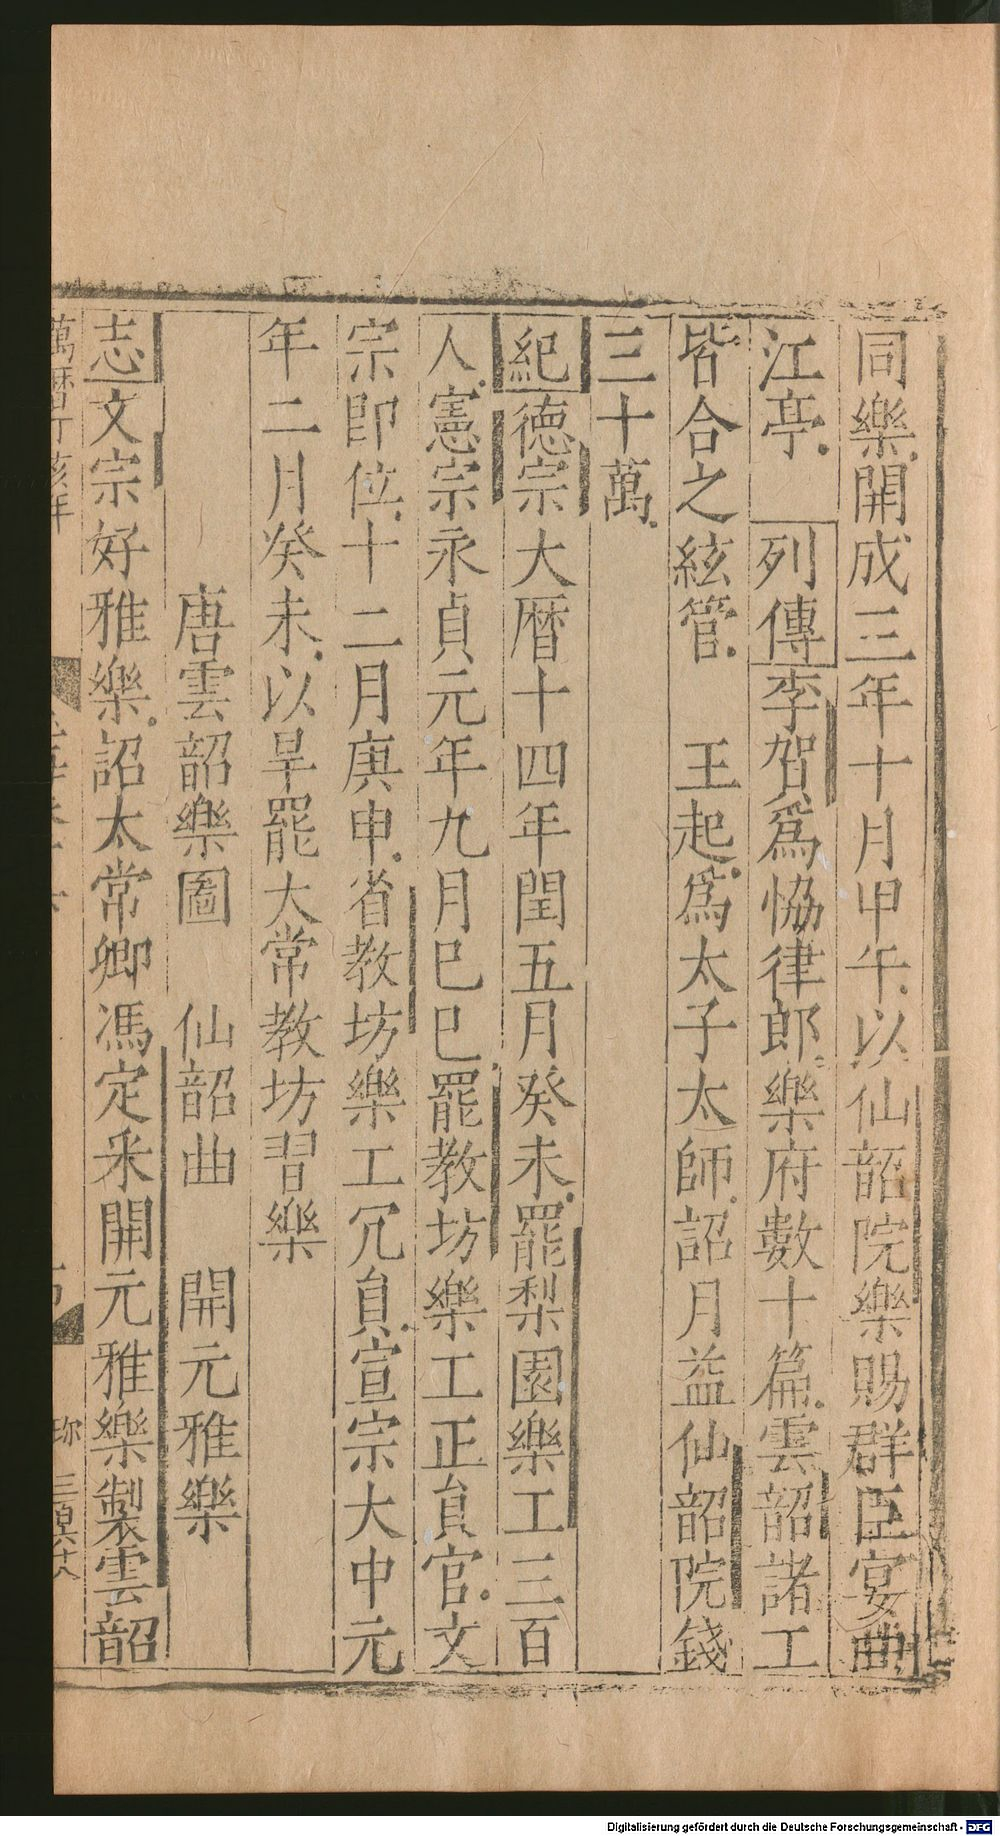 同樂開成三年十月甲午以仙韶院樂賜群臣宴曲
江亭列傳李賀爲恊律郎樂府數十篇雲韶諸工
皆合之絃管王起爲太子太師詔月益仙韶院錢
三十萬
紀德宗大曆十四年閏五月癸未罷梨園樂工三百
人憲宗永貞元年九月巳巳罷教坊樂工正貟官文
宗即位十二月庚申省教坊樂工冗貟宣宗大中元
年二月癸未以旱罷大常教坊習樂
唐雲韶樂圖 仙韶曲 開元雅樂
志文宗好雅樂詔太常卿馮定采開元雅樂製雲韶
萬曆丁亥年
Digitalisierung gefördert durch die Deutsche Forschungsgemeinschaft - DFG